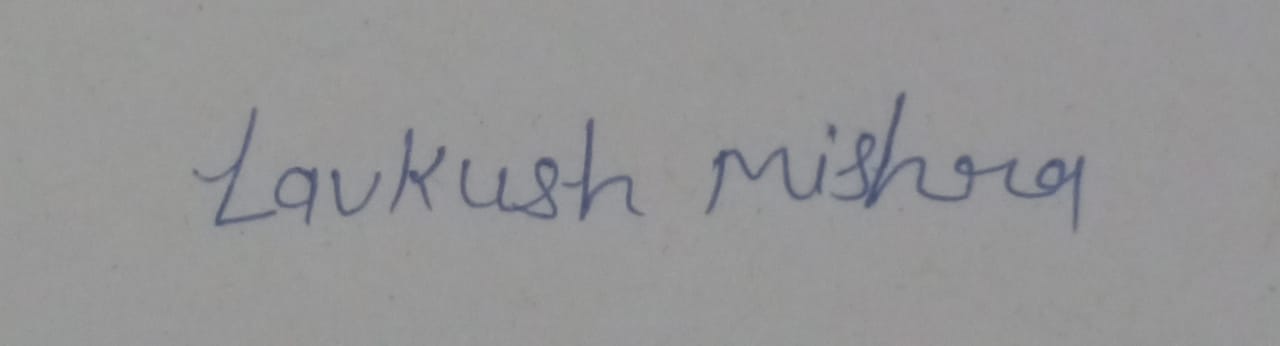 Lavkush Mishra